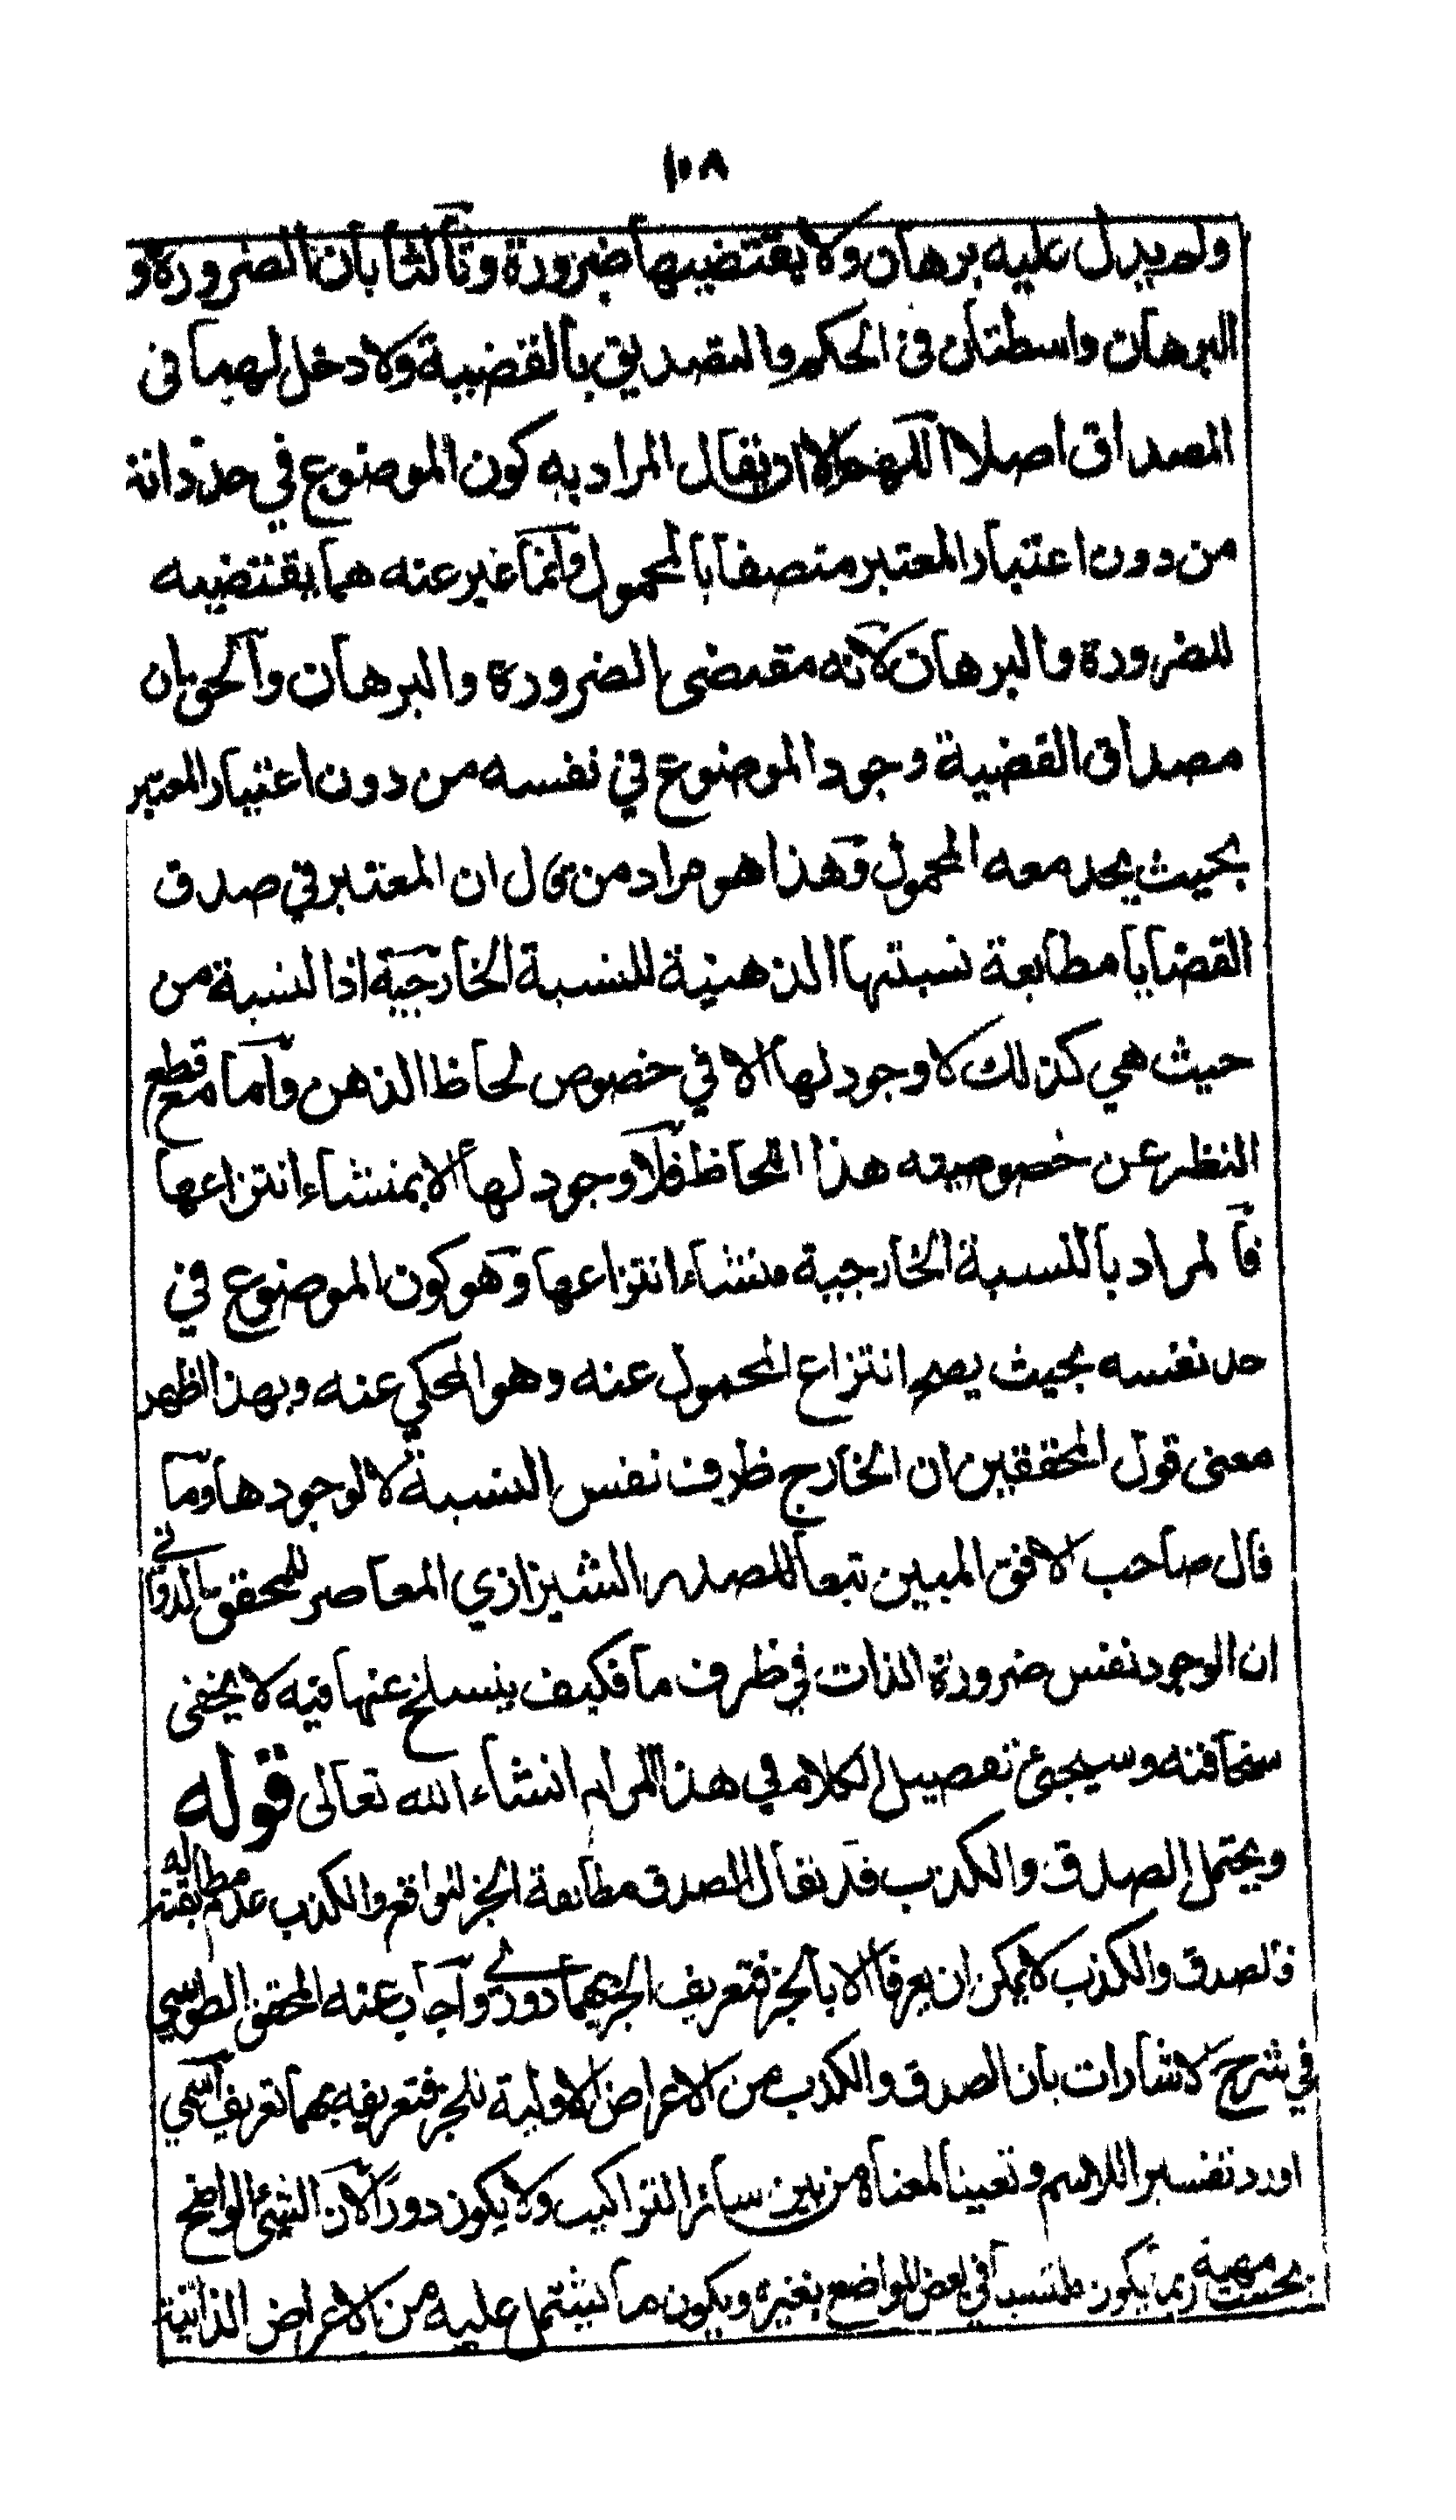 ١٠٨
ولم يدل عليه برهان ولا يقتضيها ضرورة وثالثا بان الضرورة و
البرهان واسطتان في الحكم والتصديق بالقضية ولا دخل لهما في
المصداق اصلا اللهم الا ان يقال المراد به كون الموضوع في حد ذاته
من دون اعتبار المعتبر متصفا بالمحمول وانما عبر عنه بما يقتضيه
الضرورة والبرهان لانه مقتضى الضرورة والبرهان والحق ان
مصداق القضية وجود الموضوع في نفسه من دون اعتبار المعتبر
بحيث يتحد معه المحمول وهذا هو مراد من قال ان المعتبر في صدق
القضايا مطابعة نسبتها الذهنية للنسبة الخارجية اذ النسبة من
حيث هي كذلك لا وجود لها الا في خصوص لحاظ الذهن واما مع قطع
النظر عن خصوصيته هذا اللحاظ فلا وجود لها الا بمنشاء انتزاعها
فالمراد بالنسبة الخارجية منشاء انتزاعها وهو كون الموضوع في
حد نفسه بحيث يصح انتزاع المحمول عنه وهو المحكي عنه وبهذا ظهر
معنى قول المحققين ان الخارج ظرف نفس النسبة لا لوجودها وما
قال صاحب الافق المبين تبعا للصدر الشيرازي المعاصر للمحقق الدواني
ان الوجود نفس ضرورة الذات في ظرف ما فكيف ينسلخ عنها فيه لا يخفى
سخافته وسيجئ تفصيل الكلام في هذا المرام انشاء الله تعالى قوله
ويحتمل الصدق والكذب قد يقال الصدق مطابقة الخبر للواقع والكذب عدم مطابقته له
فالصدق والكذب لا يمكن ان يعرفا الا بالخبر فتعريف الخبر بهما دوري واجاب عنه المحقق الطوسي
في شرح الاشارات بان الصدق والكذب من الاعراض الاولية للخبر فتعريفه بهما تعريف اسمي
اورد تفسيرا للاسم وتعيينا لمعناه من بين سائر التراكيب ولا يكون دورا لان الشئ الواضح
بحسب مهية ربما يكون ملتبسا في بعض المواضع بغيره ويكون ما يشتمل عليه من الاعراض الذاتية